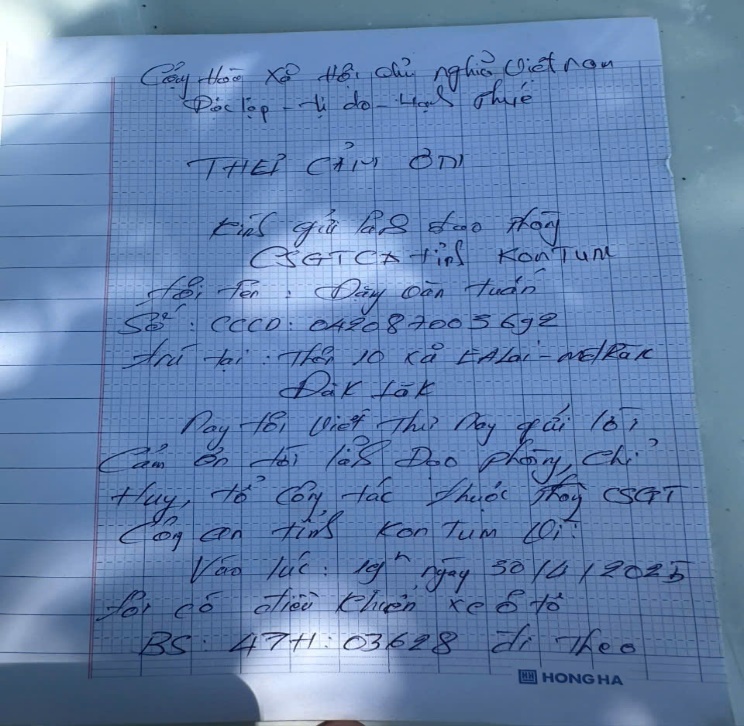 Cộng Hoà Xã Hội Chủ nghĩa Việt nam
Độc lập - tự do - Hạnh Phúc
THƯ CẢM ƠN
Kính gửi lãnh đạo Phòng
CSGT CA tỉnh KonTum
tôi tên : Văn tuấn
Số : CCCD : 042087003692
trú tại : Thôn 10 xã EALai - 
Đăk Lăk
Nay tôi viết Thư này gửi lời
Cảm ơn tới lãnh Đạo phòng, chỉ
Huy, tổ công tác thuộc Phòng CSGT
Công an tỉnh KonTum Vì:
Vào lúc : 19h ngày 30/4/2025
tôi có điều khiển xe ô tô
BS : 47H : 03628 đi Theo
HH HONG HA